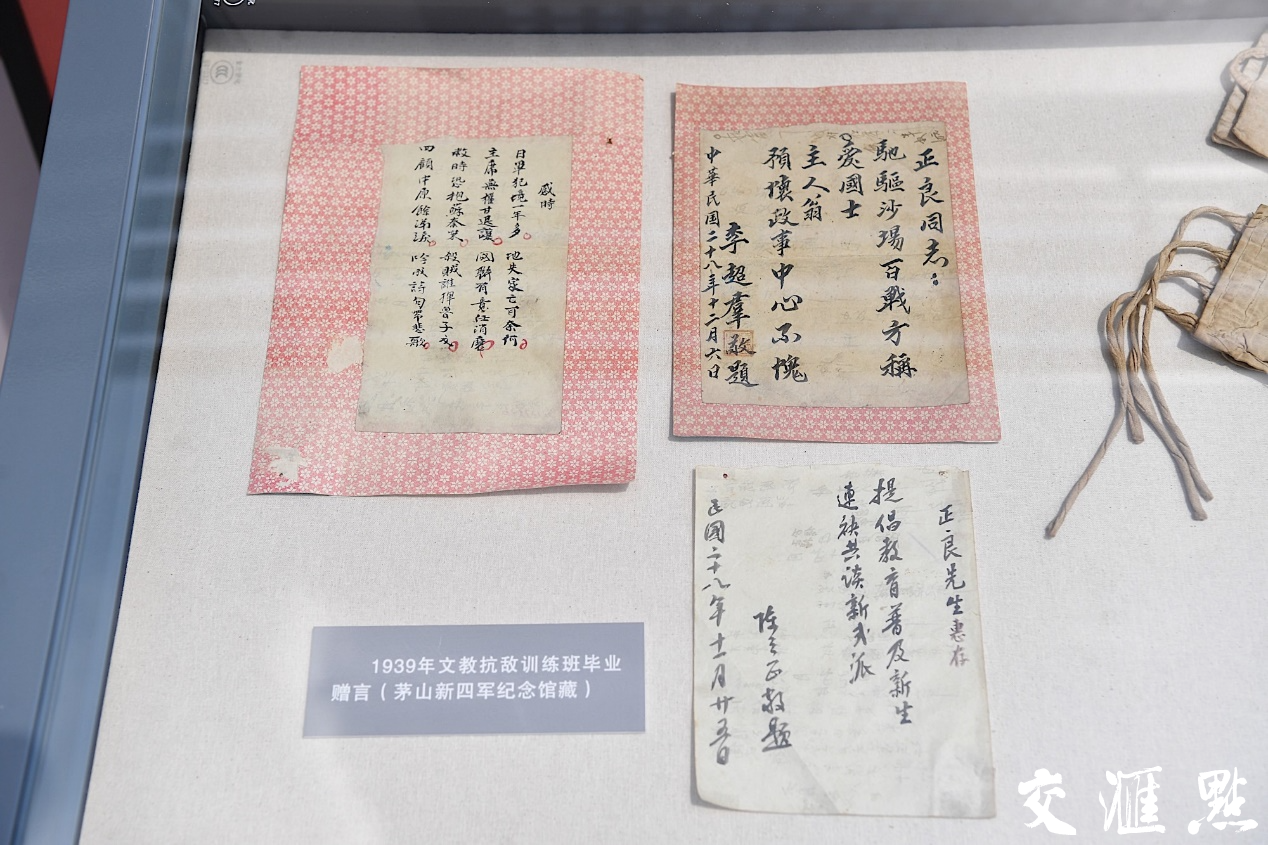 感時
日軍犯境一年多 地失家亡可奈何
主席無權甘退讓 國聯有意任消磨
救時恐抱蘇秦 殺賊誰揮魯子戈
回顧中原餘滿淚 吟成詩句當悲歌
正良同志:
馳驅沙場百戰方稱
愛國士
主人翁
預懷政事中心不愧
李超羣敬題
中華民国二十八年十二月六日
正良先生惠存
提倡教育普及新生
連袂共談新
陳 正敬題
民國二十八年十一月廿五日
1939年文教抗敌训练班毕业
赠言(茅山新四军纪念馆藏)
交滙點